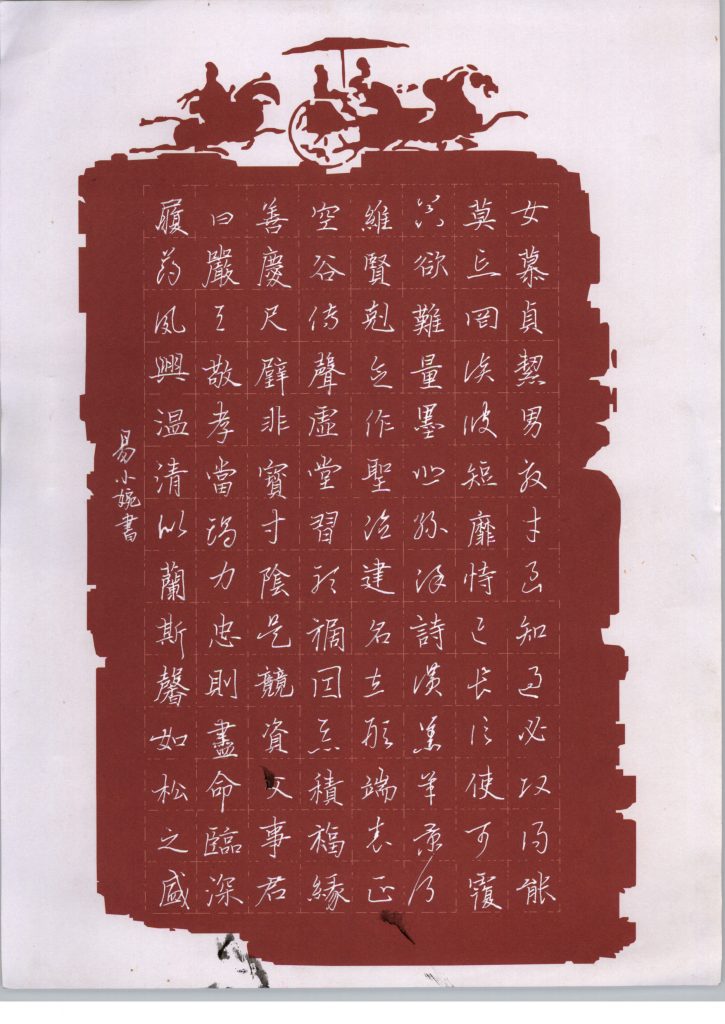 女慕貞絜男效才良知過必改得能
莫忘罔談彼短靡恃己長信使可覆
器欲難量墨悲絲染詩讚羔羊景行
維賢剋念作聖德建名立形端表正
空谷传聲虛堂習聽禍因惡積福緣
善慶尺璧非寶寸陰是競資父事君
曰嚴與敬孝當竭力忠則盡命臨深
履薄夙興温清似蘭斯馨如松之盛
易小婉書